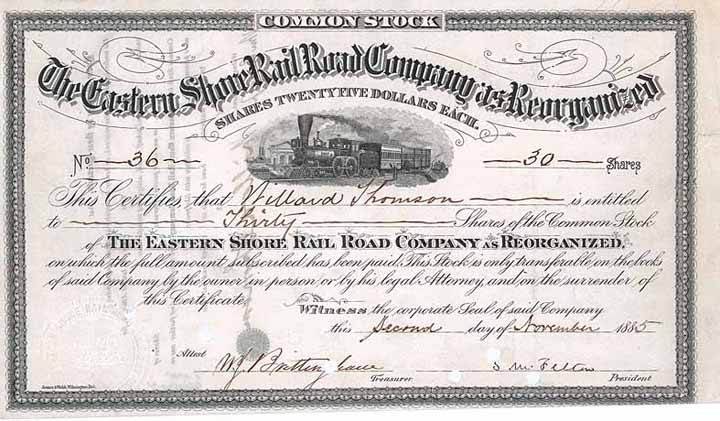 COMMON STOCK
The Eastern Shore Rail Road Company as Reorganized
SHARES TWENTY FIVE DOLLARS EACH.
No. 36 30 Shares
This Certifies, that Willard Thomson is entitled
to Thirty Shares of the Common Stock
of THE EASTERN SHORE RAIL ROAD COMPANY AS REORGANIZED,
on which the full amount subscribed has been paid. This Stock is only transferable on the books
of said Company by the owner in person or by his legal Attorney, and on the surrender of
this Certificate.
Witness the corporate Seal of said Company
this Second day of November 1885
Attest
W J Brittingham S M Felton
Treasurer President